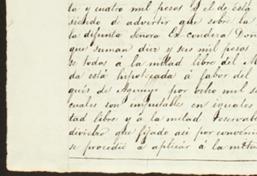 ta y cuatro mil pesos y el de esta
siendo de advertir que sobre la
la difunta Señora la condesa Doña
que suman diez y seis mil pesos
se todos á la mitad libre del M
da está hipotecada á favor del
qués de Aguayo por ocho mil
cuales son imputables en iguales
tad libre y á la mitad reservable
dividir que fijado asi por convenio
se procedió á aplicar á la mitad